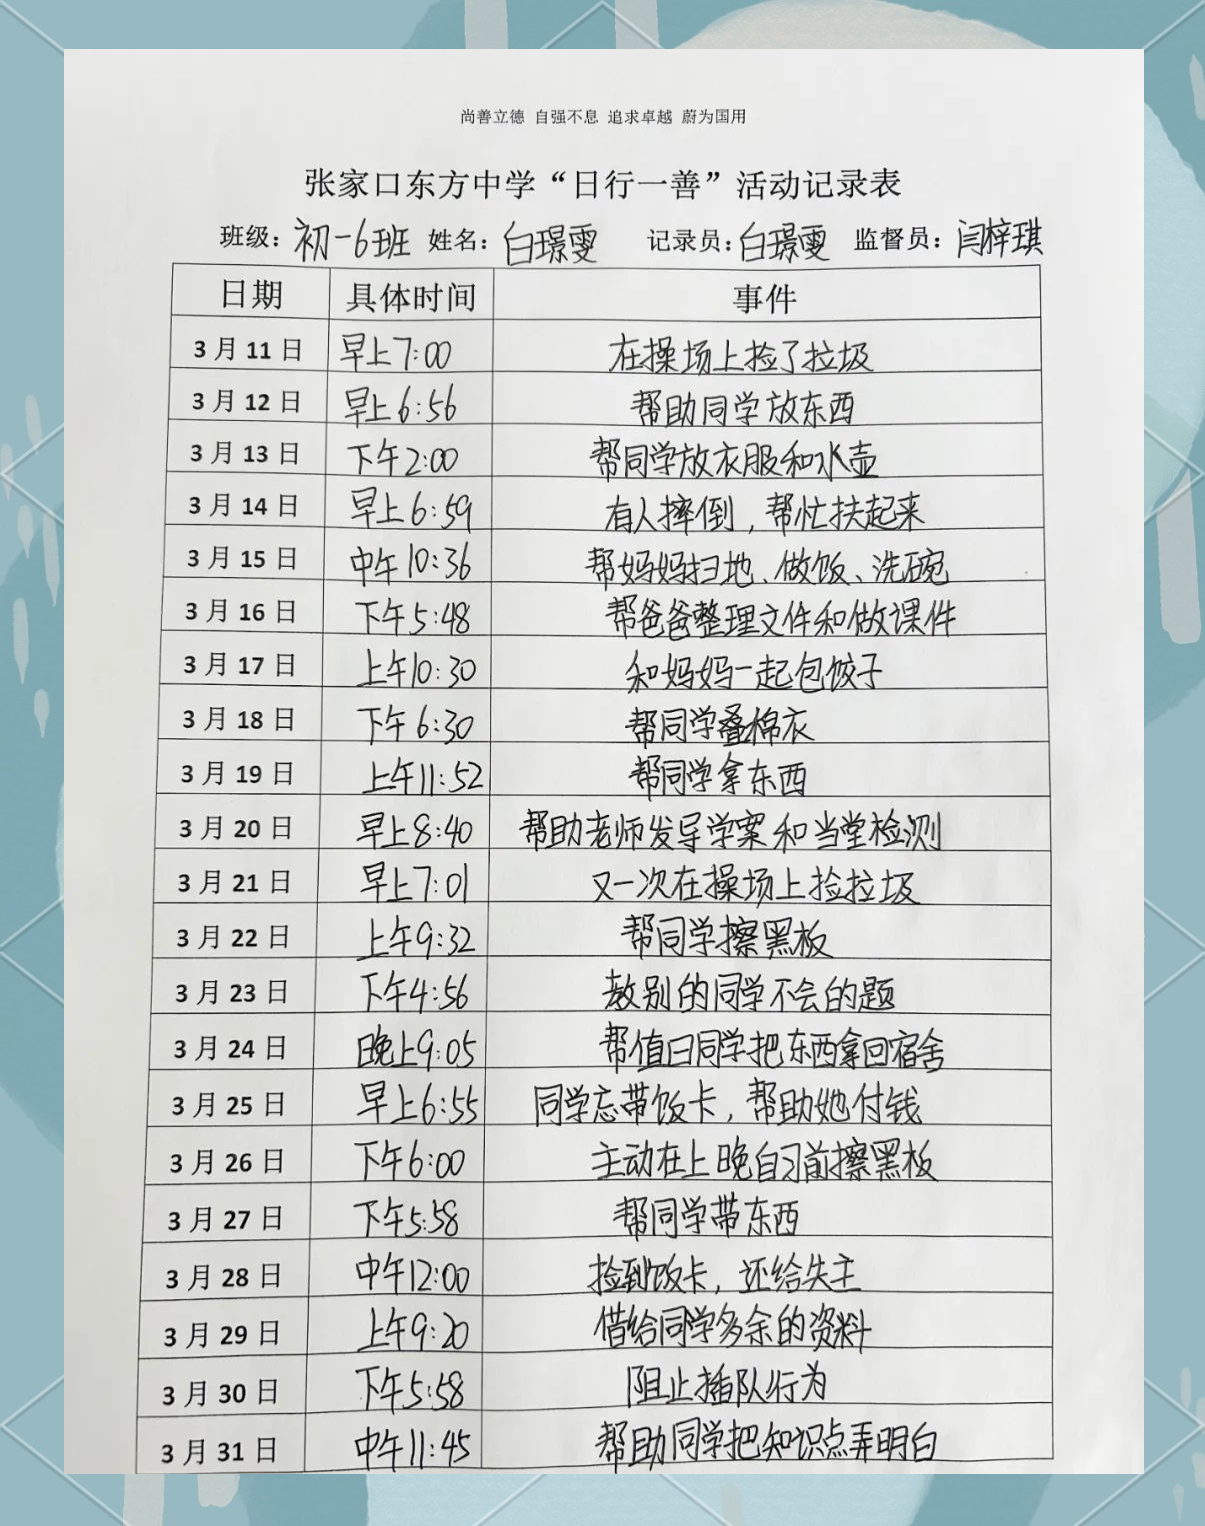 尚善立德 自强不息 追求卓越 蔚为国用
张家口东方中学“日行一善”活动记录表
班级：初一6班 姓名：白璟雯 记录员：白璟雯 监督员：闫梓琪
日期 具体时间 事件
3月11日 早上7:00 在操场上捡了垃圾
3月12日 早上6:56 帮助同学放东西
3月13日 下午2:00 帮同学放衣服和水壶
3月14日 早上6:59 有人摔倒，帮忙扶起来
3月15日 中午10:36 帮妈妈扫地、做饭、洗碗
3月16日 下午5:48 帮爸爸整理文件和做课件
3月17日 上午10:30 和妈妈一起包饺子
3月18日 下午6:30 帮同学叠棉衣
3月19日 上午11:52 帮同学拿东西
3月20日 早上8:40 帮助老师发导学案和当堂检测
3月21日 早上7:01 又一次在操场上捡垃圾
3月22日 上午9:32 帮同学擦黑板
3月23日 下午4:56 教别的同学不会的题
3月24日 晚上9:05 帮值日同学把东西拿回宿舍
3月25日 早上6:55 同学忘带饭卡，帮助她付钱
3月26日 下午6:00 主动在上晚自习前擦黑板
3月27日 下午5:58 帮同学带东西
3月28日 中午12:00 捡到饭卡，还给失主
3月29日 上午9:20 借给同学多余的资料
3月30日 下午5:58 阻止插队行为
3月31日 中午11:45 帮助同学把知识点弄明白